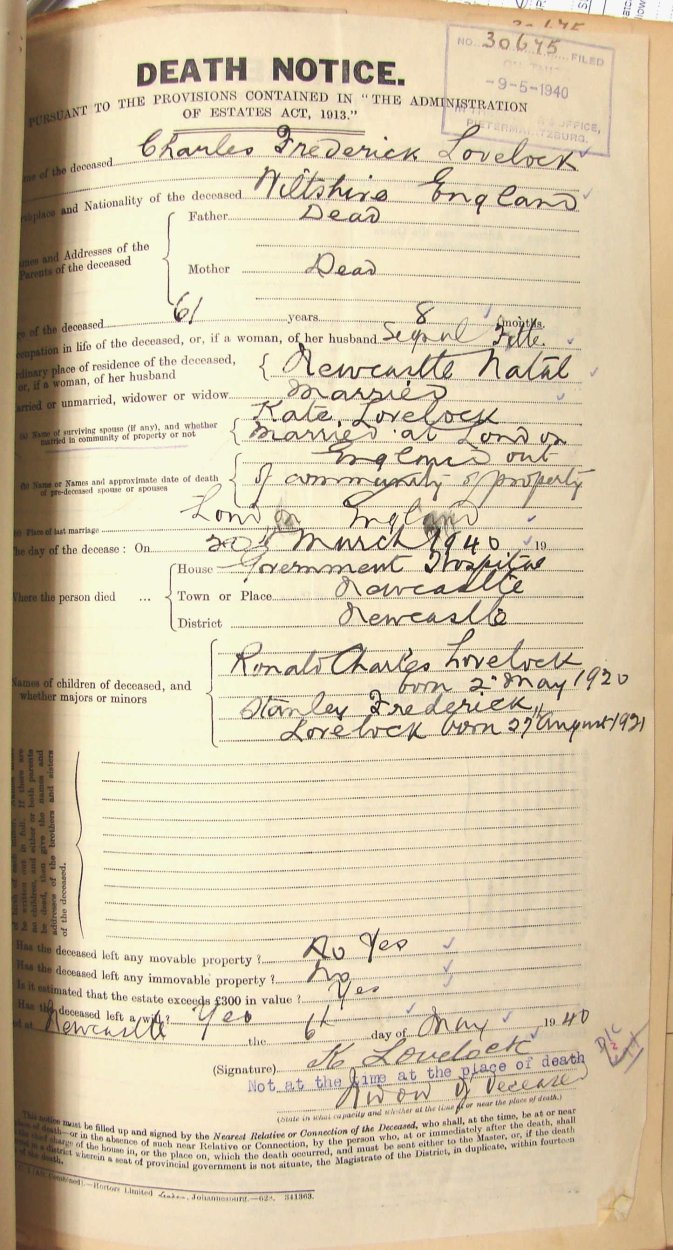 30645
NO. 30645 FILED
-9-5-1940
OFFICE,
PIETERMARITZBURG.
DEATH NOTICE.
PURSUANT TO THE PROVISIONS CONTAINED IN "THE ADMINISTRATION
OF ESTATES ACT, 1913."
of the deceased Charles Frederick Lovelock
and Nationality of the deceased Wiltshire England
Names and Addresses of the
Parents of the deceased
Father Dead
Mother Dead
of the deceased 61 years 8 months.
occupation in life of the deceased, or, if a woman, of her husband
ordinary place of residence of the deceased,
or, if a woman, of her husband
Newcastle Natal
Married or unmarried, widower or widow Married
(a) Name of surviving spouse (if any), and whether
married in community of property or not
Kate Lovelock
Married at London
England out
of community of property
(b) Name or Names and approximate date of death
of pre-deceased spouse or spouses
(c) Place of last marriage London England
The day of the decease: On 20th March 1940 19
Where the person died ...
House Government Hospital
Town or Place Newcastle
District Newcastle
Names of children of deceased, and
whether majors or minors
Ronald Charles Lovelock
born 2nd May 1920
Stanley Frederick
Lovelock born 27 August 1921
be written out in full. If there are
no children, and either or both parents
be dead, then give the names and
addresses of the brothers and sisters
of the deceased.
Has the deceased left any movable property? No Yes
Has the deceased left any immovable property? No
Is it estimated that the estate exceeds £300 in value? Yes
Has the deceased left a will? Yes
at Newcastle the 6th day of May 1940
(Signature) K Lovelock
Not at the time at the place of death
Widow of Deceased
(State in what capacity and whether at the time at or near the place of death.)
This notice must be filled up and signed by the Nearest Relative or Connection of the Deceased, who shall, at the time, be at or near
place of death—or in the absence of such near Relative or Connection, by the person who, at or immediately after the death, shall
the chief charge of the house in, or the place on, which the death occurred, and must be sent either to the Master, or, if the death
in a district wherein a seat of provincial government is not situate, the Magistrate of the District, in duplicate, within fourteen
of the death.
Hortors Limited Johannesburg.—623. 341363.